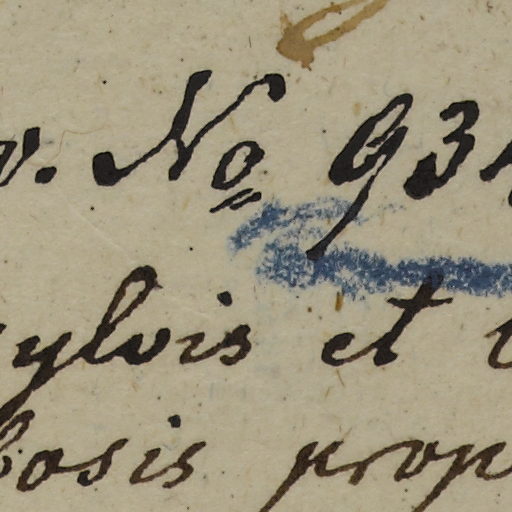 No 93
sylvis et
bosis prop